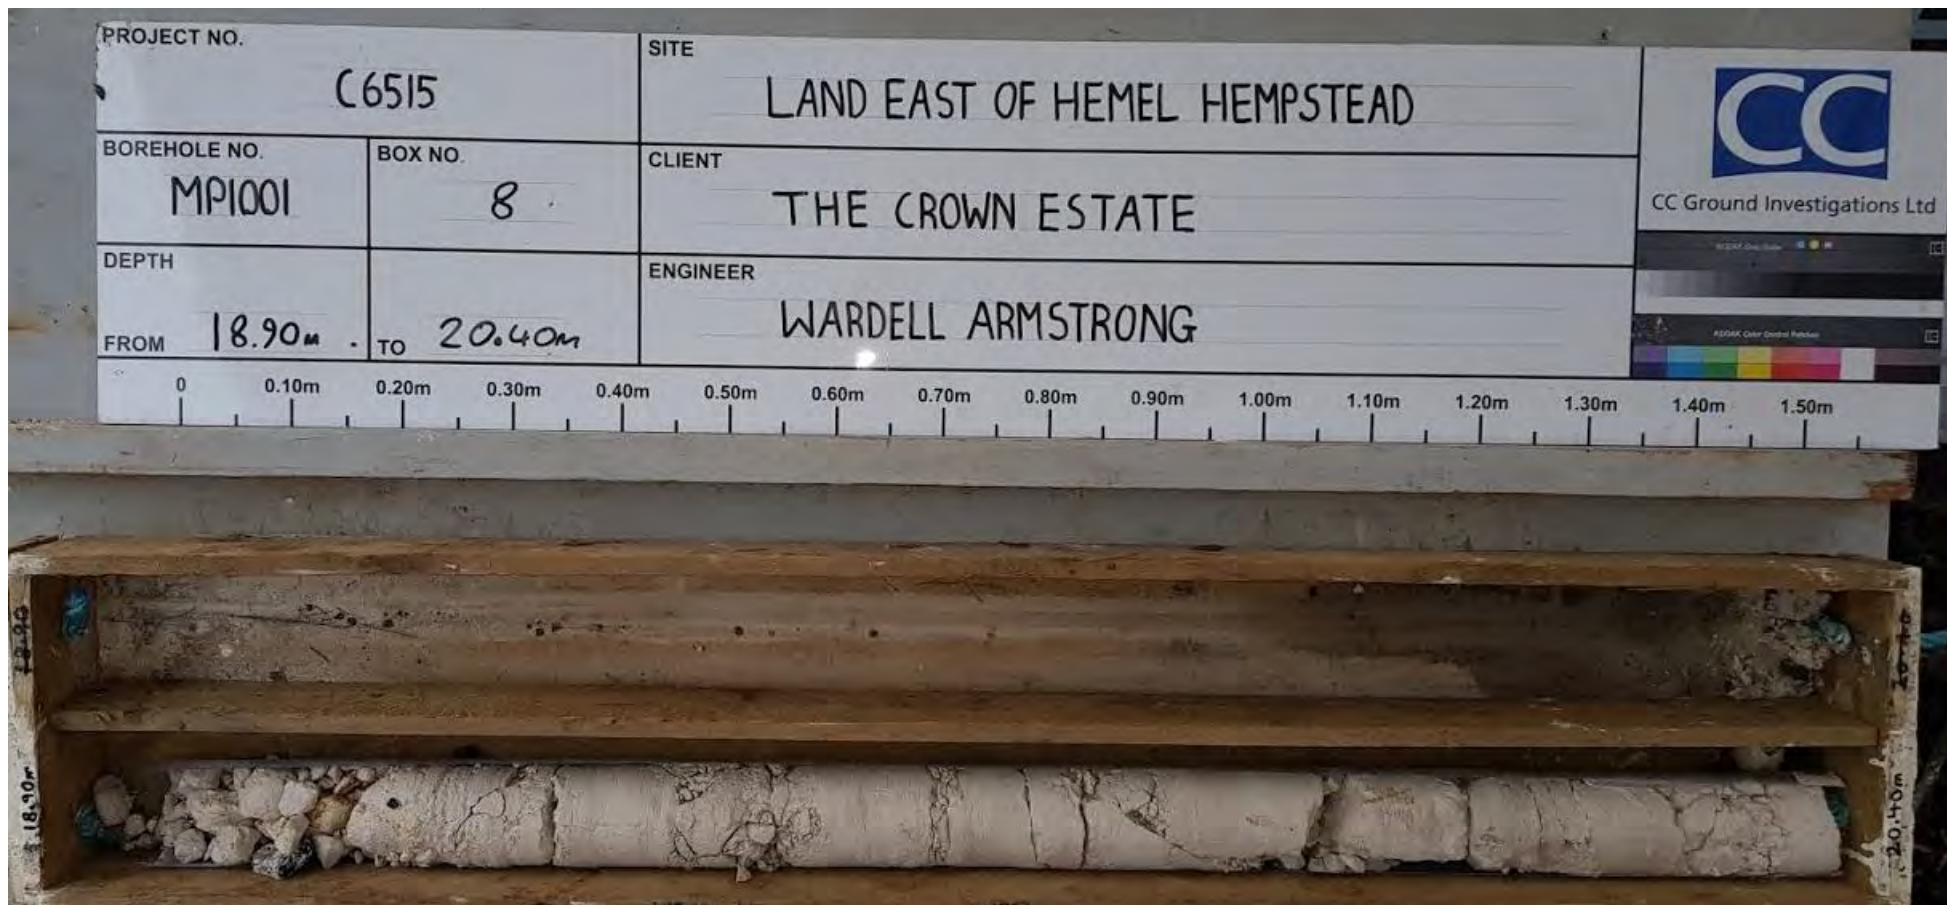 PROJECT NO.
C6515
SITE
LAND EAST OF HEMEL HEMPSTEAD
BOREHOLE NO.
MP1001
BOX NO.
8
CLIENT
THE CROWN ESTATE
DEPTH
FROM 18.90m
TO 20.40m
ENGINEER
WARDELL ARMSTRONG
CC
CC Ground Investigations Ltd
KODAK Color Control Patches
0 0.10m 0.20m 0.30m 0.40m 0.50m 0.60m 0.70m 0.80m 0.90m 1.00m 1.10m 1.20m 1.30m 1.40m 1.50m
18.90m
20.40m